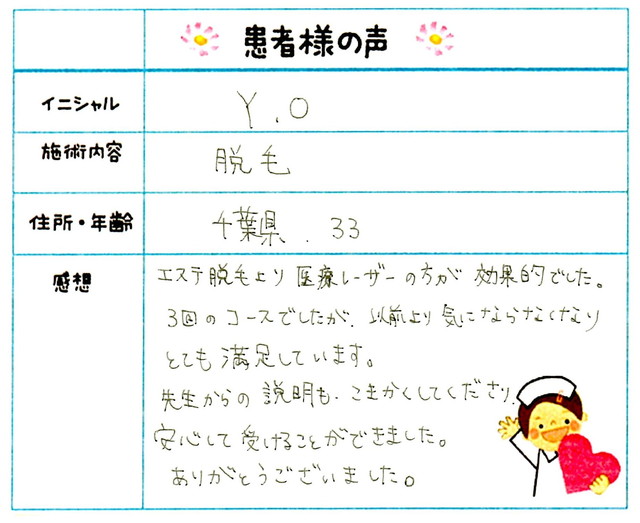 患者様の声
イニシャル Y.O
施術内容 脱毛
住所・年齢 千葉県.33
感想 エステ脱毛より医療レーザーの方が効果的でした。
3回のコースでしたが、以前より気にならなくなり
とても満足しています。
先生からの説明も、こまかくしてくださり、
安心して受けることができました。
ありがとうございました。